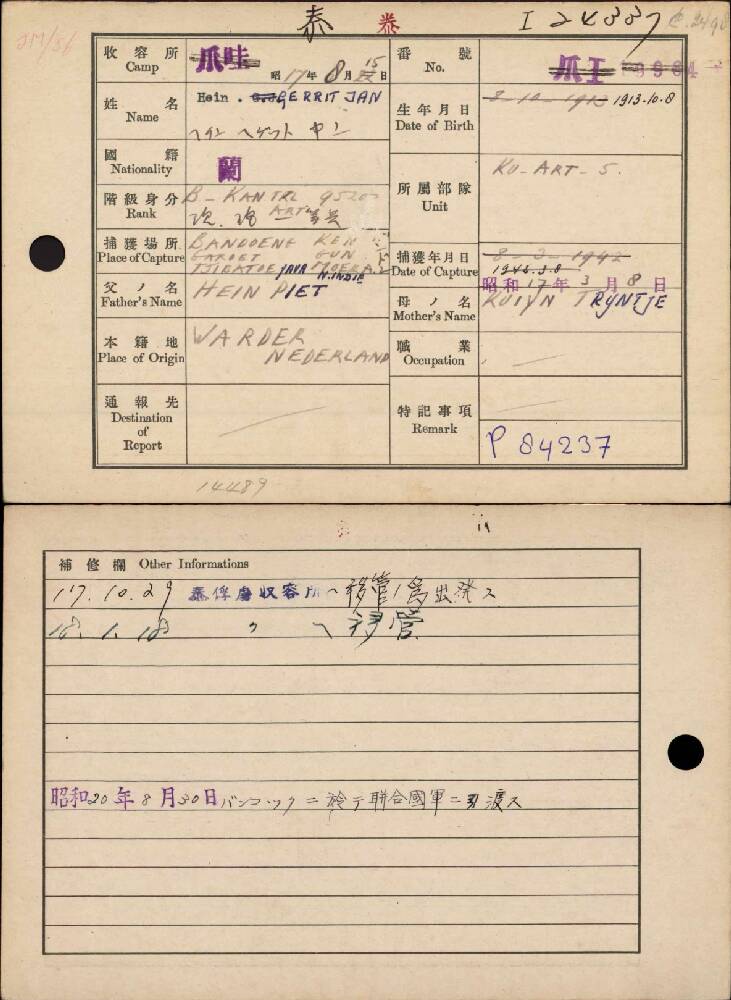 泰 泰 I 24337
2M/56
收容所 Camp 爪哇 昭17年8月15日
番號 No. 爪王
姓名 Name Hein. GERRIT JAN
ヘイン ヘゲット ヤン
生年月日 Date of Birth 8-10-1913 1913.10.8
國籍 Nationality 蘭
階級身分 Rank B-KANTRL
所屬部隊 Unit KU-ART-S.
捕獲場所 Place of Capture BANDOENG
GAROET
JAVA N.INDIE
捕獲年月日 Date of Capture 8-3-1942
1942.3.8
昭和17年3月8日
父ノ名 Father's Name HEIN PIET
母ノ名 Mother's Name KUIJN TRYNTJE
本籍地 Place of Origin WARDER
NEDERLAND
職業 Occupation
通報先 Destination of Report
特記事項 Remark
P 84237
14489
補修欄 Other Informations
17.10.29 泰俘虜収容所ヘ移管ノ為出発ス
18.1.18 〃 ヘ移管
昭和20年8月30日バンコックニ於テ聯合國軍ニ引渡ス